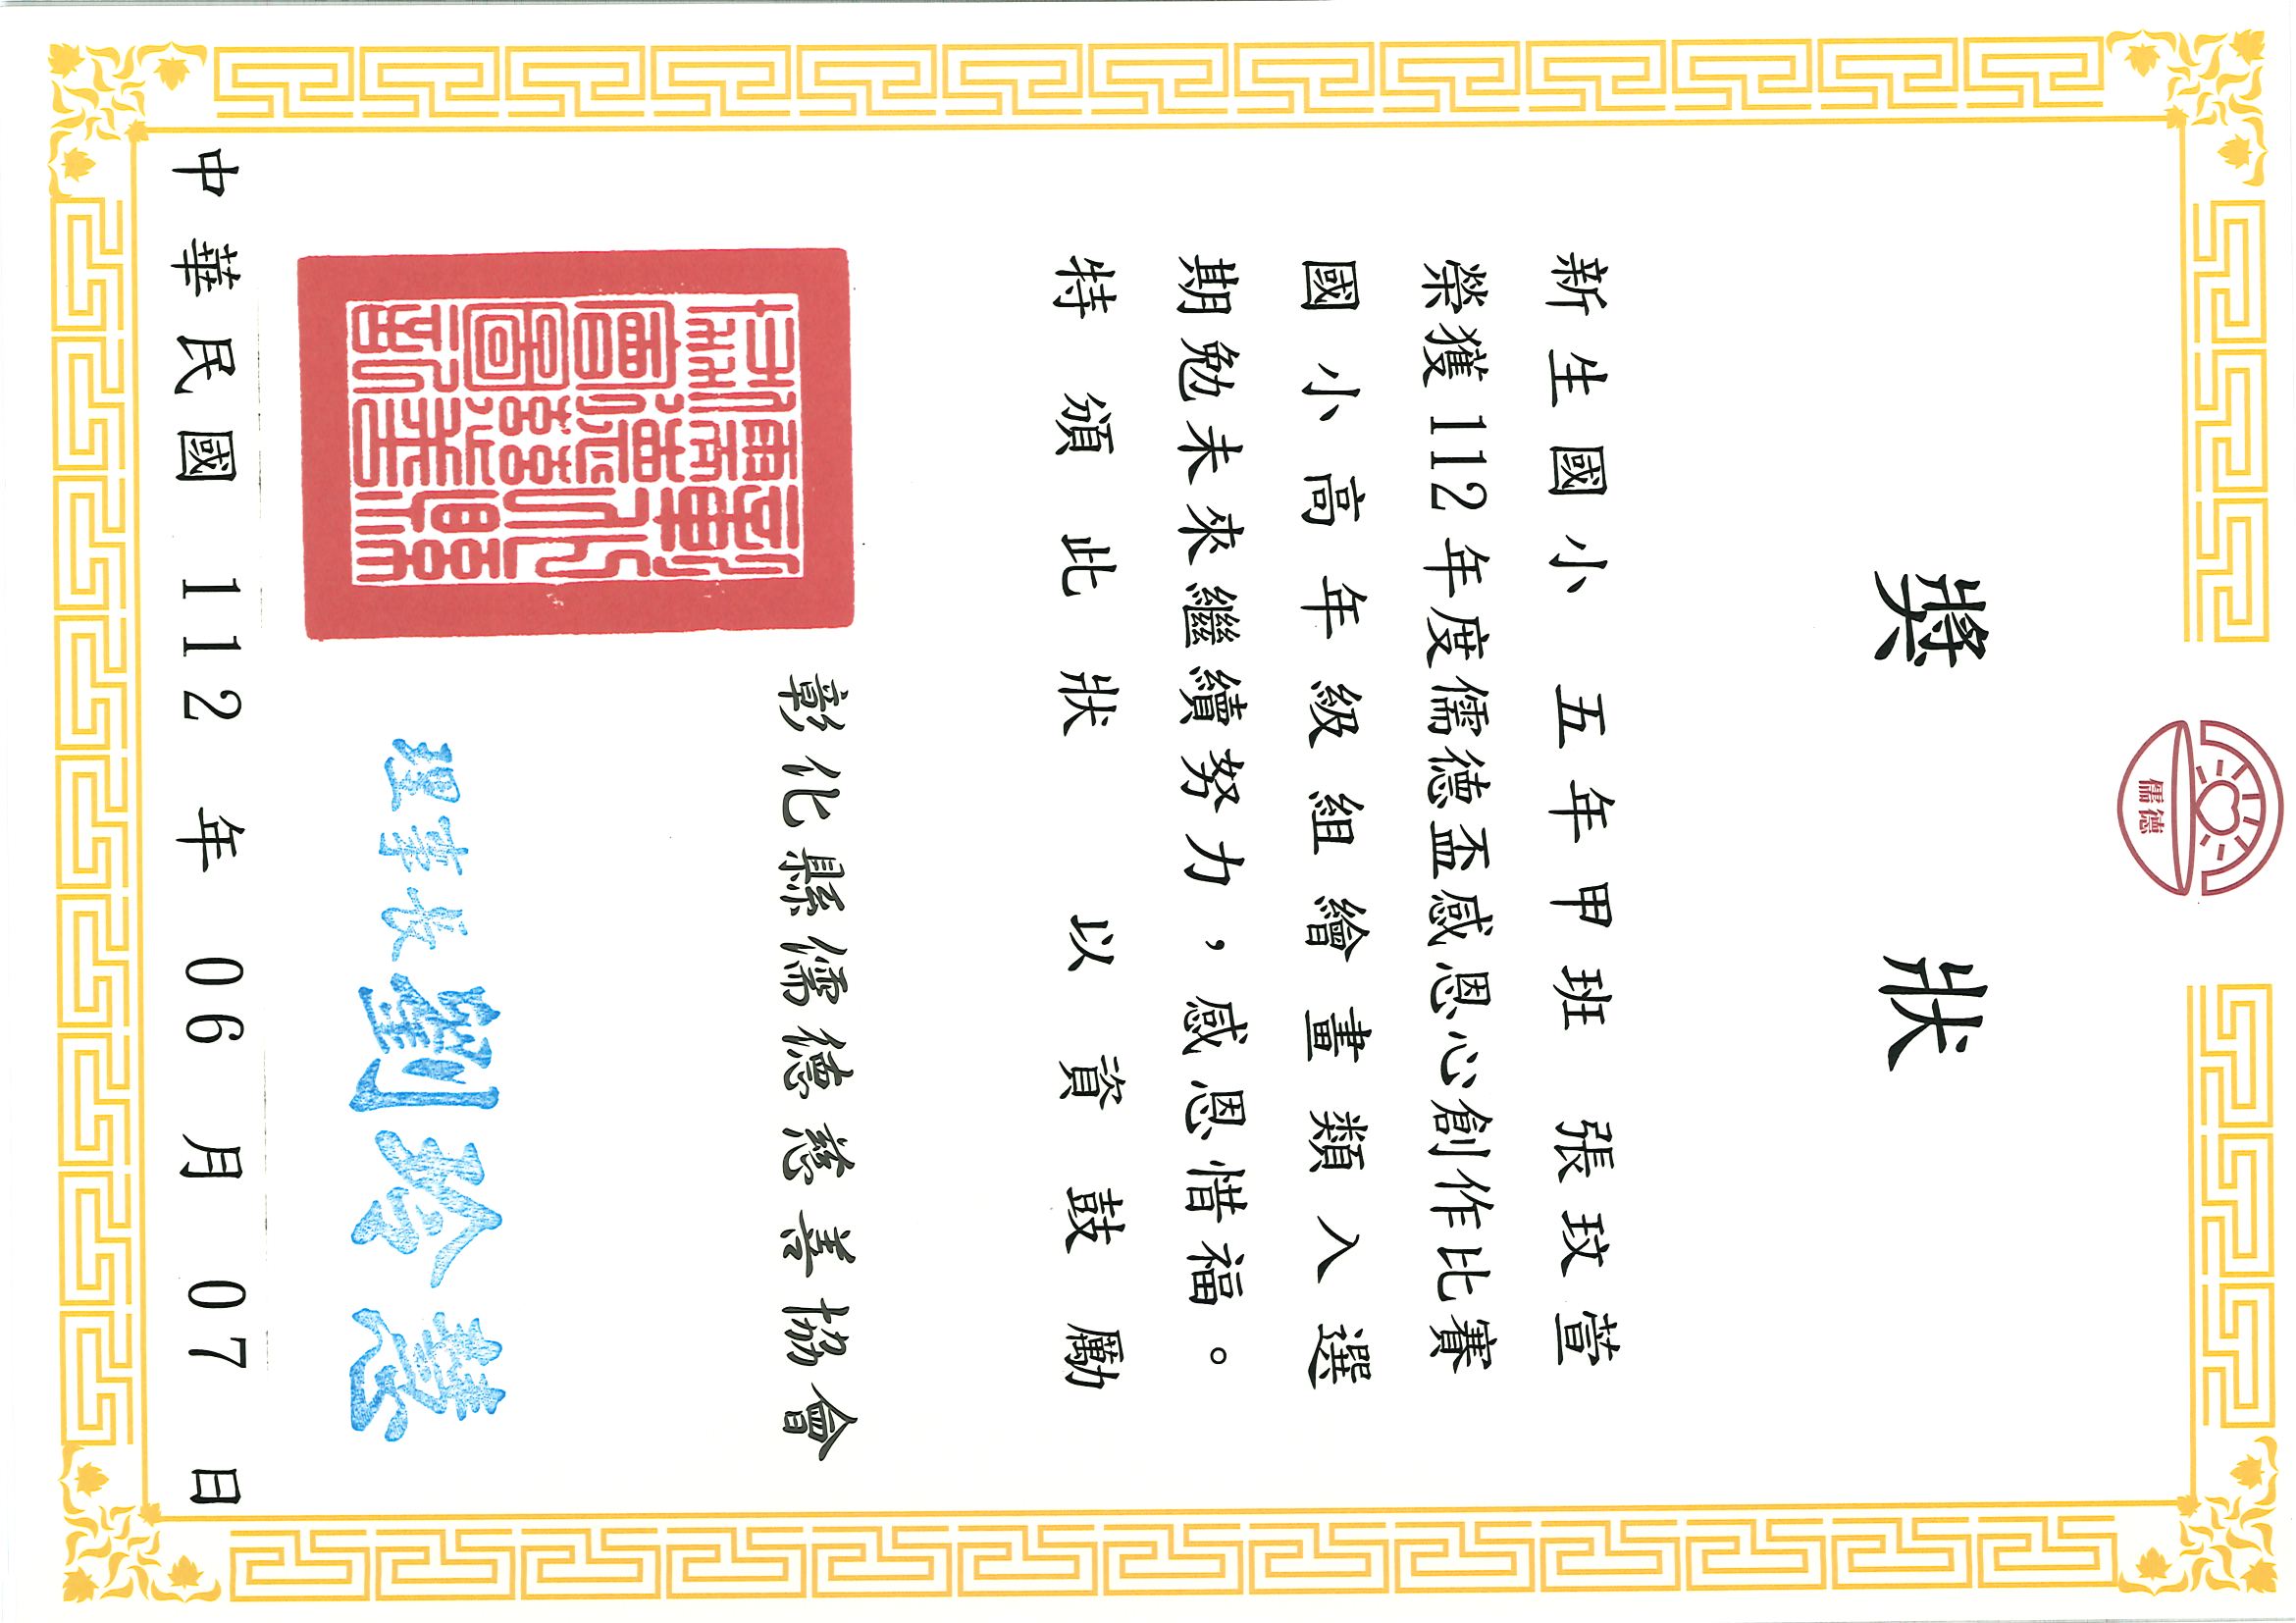 儒德
獎狀
新生國小 五年甲班 張玟萓
榮獲112年度儒德盃感恩心創作比賽
國小高年級組繪畫類入選
期勉未來繼續努力，感恩惜福。
特頒此狀 以資鼓勵
彰化縣儒德慈善協會
理事長 劉
中華民國 112 年 06 月 07 日